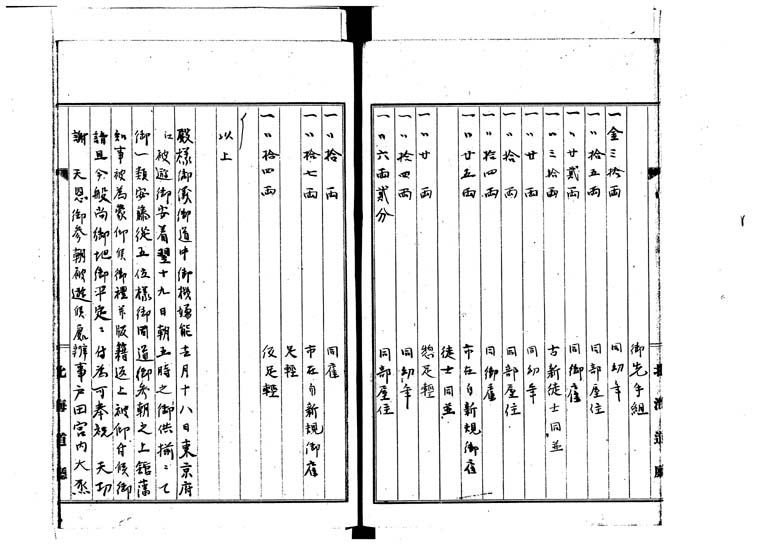 御先手組
一金三拾両 同幼年
一〃拾五両 同部屋住
一〃廿貳両 同御雇
一〃三拾両 古新徒士同並
一〃廿両 同幼年
一〃拾両 同部屋住
一〃拾四両 同御雇
一〃廿五両 市在自新規御雇
徒士同並
一〃廿両 惣足軽
一〃拾四両 同幼年
一〃六両貳分 同部屋住
一〃拾両 同雇
一〃拾七両 市在自新規御雇
足軽
一〃拾四両 仮足軽
以上
殿様御儀御道中御機嫌能去月十八日東京府
江被遊御安着翌十九日朝五時之御供揃ニて
御一類安藤従五位様御同道御参朝之上館藩
知事被為蒙仰候御礼并版籍返上被仰付候御
請且今般尚御地御平定ニ付為可奉祝 天功
謝 天恩御参朝被遊候処辨事戸田宮内大丞
北海道廳
北海道廳